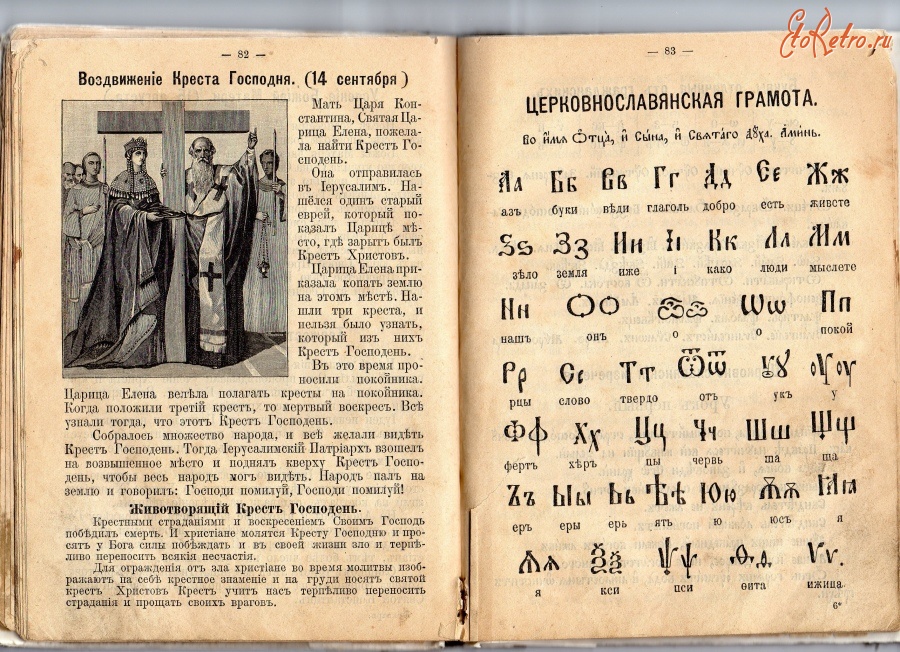 EtoRetro.ru
— 82 —
Воздвиженіе Креста Господня. (14 сентября)
Мать Царя Кон-
стантина, Святая Ца-
рица Елена, пожела-
ла найти Крестъ Го-
сподень.
Она отправилась
въ Іерусалимъ. На-
шёлся одинъ старый
еврей, который по-
казалъ Царицѣ мѣ-
сто, гдѣ зарытъ былъ
Крестъ Христовъ.
Царица Елена при-
казала копать землю
на этомъ мѣстѣ. На-
шли три креста, и
нельзя было узнать,
который изъ нихъ
Крестъ Господень.
Въ это время про-
носили покойника.
Царица Елена велѣла полагать кресты на покойника.
Когда положили третій крестъ, то мертвый воскресъ. Всѣ
узнали тогда, что этотъ Крестъ Господень.
Собралось множество народа, и всѣ желали видѣть
Крестъ Господень. Тогда Іерусалимскій Патріархъ взошелъ
на возвышенное мѣсто и поднялъ кверху Крестъ Госпо-
день, чтобы весь народъ могъ видѣть. Народъ палъ на
землю и говорилъ: Господи помилуй, Господи помилуй!
Животворящій Крестъ Господень.
Крестными страданіями и воскресеніемъ Своимъ Господь
побѣдилъ смерть. И христіане молятся Кресту Господню и про-
сятъ у Бога силы побѣждать и въ своей жизни зло и терпѣ-
ливо переносить всякія несчастія.
Для огражденія отъ зла христіане во время молитвы изоб-
ражаютъ на себѣ крестное знаменіе и на груди носятъ святой
крестъ Христовъ Крестъ учитъ насъ терпѣливо переносить
страданія и прощать своихъ враговъ.
— 83 —
ЦЕРКОВНОСЛАВЯНСКАЯ ГРАМОТА.
Во и҆́мѧ Ѻ҆тца̀, и҆ Сы́на, и҆ Свѧта́гѡ Дꙋ́ха. А҆ми́нь.
Аа Бб Вв Гг Дд Єе Жж
азъ буки вѣди глаголь добро есть живете
Ѕѕ Зз Ии Іі Кк Лл Мм
зѣло земля иже і како люди мыслете
Нн Оо Ѻѻ Ѡѡ Пп
нашъ онъ о о покой
Рр Сс Тт Ѿѿ Ꙋꙋ Оуоу
рцы слово твердо отъ укъ у
Фф Хх Цц Чч Шш Щщ
фертъ хѣръ цы червь ша ща
Ъъ Ыы Ьь Ѣѣ Юю Ѫѫ Ꙗꙗ
еръ еры ерь ять ю юсъ я
Ѧѧ Ѯѯ Ѱѱ Ѳѳ Ѵѵ.
я кси пси ѳита ижица.
6*